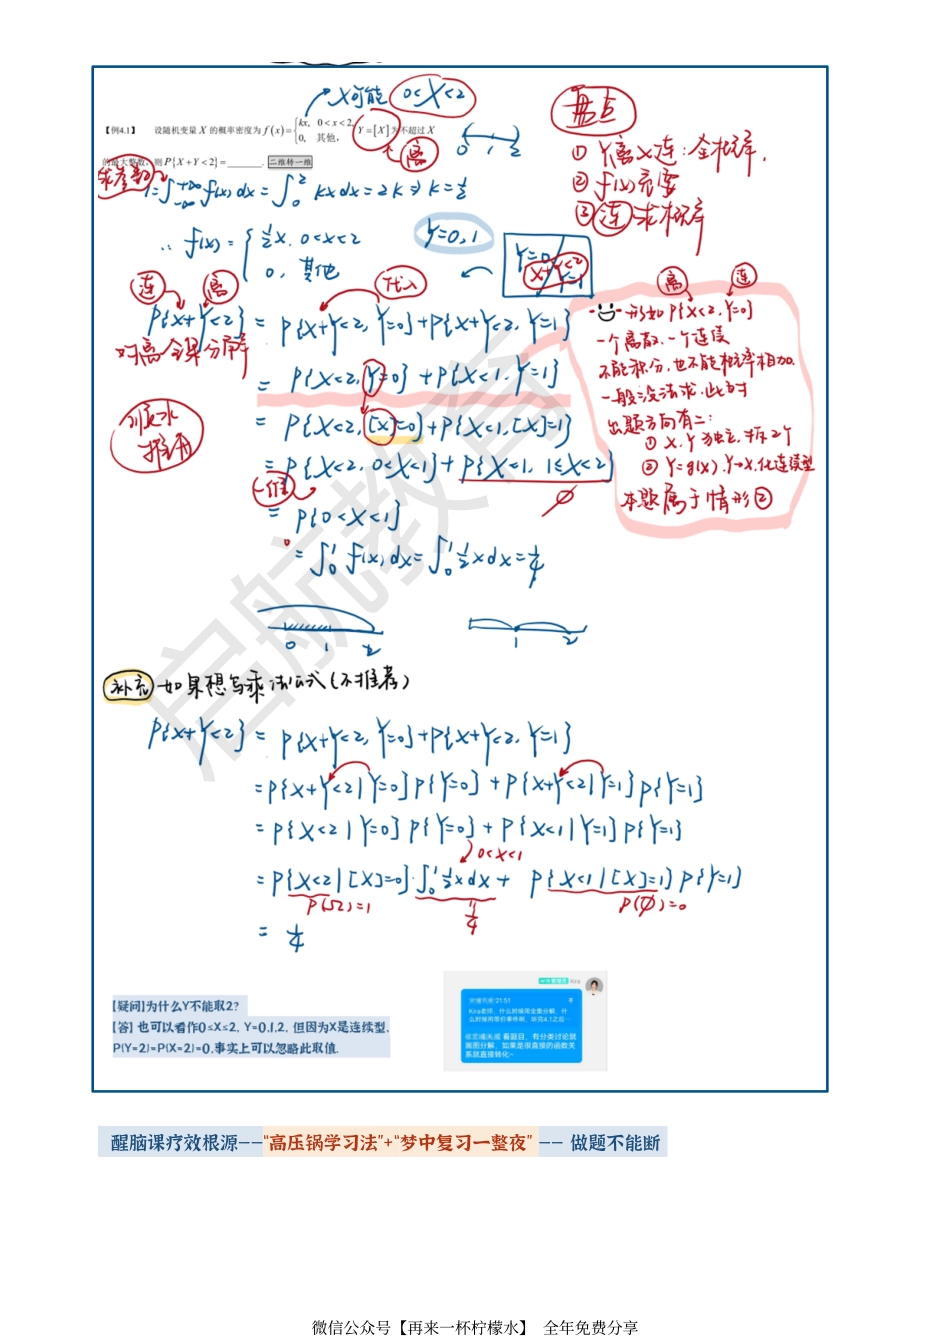 X可能 0<X<2
【例4.1】 设随机变量 X 的概率密度为 f(x)={kx, 0<x<2, 0, 其他, Y=[X]为不超过 X
的最大整数, 则 P{X+Y<2}=______. 二维转一维
离
0 1 2
盘点
① Y离X连:全概率.
② f(x)完要
③ 连 求概率
求参数
1=∫_{-∞}^{+∞} f(x)dx=∫_0^2 kx dx=2k⇒k=1/2
∴ f(x)={1/2 x, 0<x<2
0, 其他
Y=0,1
Y=0
X+Y<2
Y=1
连 离 代入
P{X+Y<2}=P{X+Y<2, Y=0}+P{X+Y<2, Y=1}
对离全集分解
=P{X<2, Y=0}+P{X<1, Y=1}
=P{X<2, [X]=0}+P{X<1, [X]=1}
=P{X<2, 0<X<1}+P{X<1, 1≤X<2}
∅
一维
=P{0<X<1}
=∫_0^1 f(x)dx=∫_0^1 1/2 x dx=1/4
顺水
推舟
离 连
形如P{X<2, Y=0}
一个离散、一个连续
不能积分,也不能概率相加.
一般没法求.此时
出题方向有二:
① X,Y独立,拆2个
② Y=g(X).Y→X,化连续型
本题属于情形②
0 1 2
1 2
补充 如果想写乘法公式(不推荐)
P{X+Y<2}=P{X+Y<2, Y=0}+P{X+Y<2, Y=1}
=P{X+Y<2|Y=0}P{Y=0}+P{X+Y<2|Y=1}P{Y=1}
=P{X<2|Y=0}P{Y=0}+P{X<1|Y=1}P{Y=1}
0<X<1
=P{X<2|[X]=0}·∫_0^1 1/2 x dx+P{X<1|[X]=1}P{Y=1}
P(Ω)=1 1/4 P(∅)=0
=1/4
【疑问】为什么Y不能取2?
【答】也可以看作0≤X≤2, Y=0,1,2, 但因为X是连续型,
P(Y=2)=P(X=2)=0,事实上可以忽略此取值.
Kira
21:51
Kira老师,什么时候用全集分解,什
么时候用等价事件啊,听完4.1之后…
看题目,有分类讨论就
画图分解,如果是很直接的函数关
系就直接转化~
醒脑课疗效根源——“高压锅学习法”+“梦中复习一整夜” —— 做题不能断
启航教育
微信公众号【再来一杯柠檬水】 全年免费分享